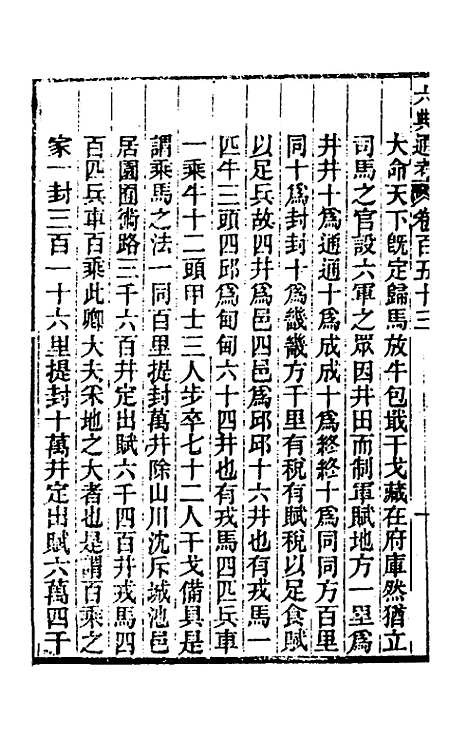 六典通考 卷百五十三
大命天下旣定歸馬放牛包戢干戈藏在府庫然猶立
司馬之官設六軍之眾因井田而制軍賦地方一里爲
井井十爲通通十爲成成十爲終終十爲同同方百里
同十爲封封十爲畿畿方千里有稅有賦稅以足食賦
以足兵故四井爲邑四邑爲邱邱十六井也有戎馬一
匹牛三頭四邱爲甸甸六十四井也有戎馬四匹兵車
一乘牛十二頭甲士三人步卒七十二人干戈備具是
謂乘馬之法一同百里提封萬井除山川沈斥城池邑
居園囿術路三千六百井定出賦六千四百井戎馬四
百匹兵車百乘此卿大夫采地之大者也是謂百乘之
家一封三百一十六里提封十萬井定出賦六萬四千